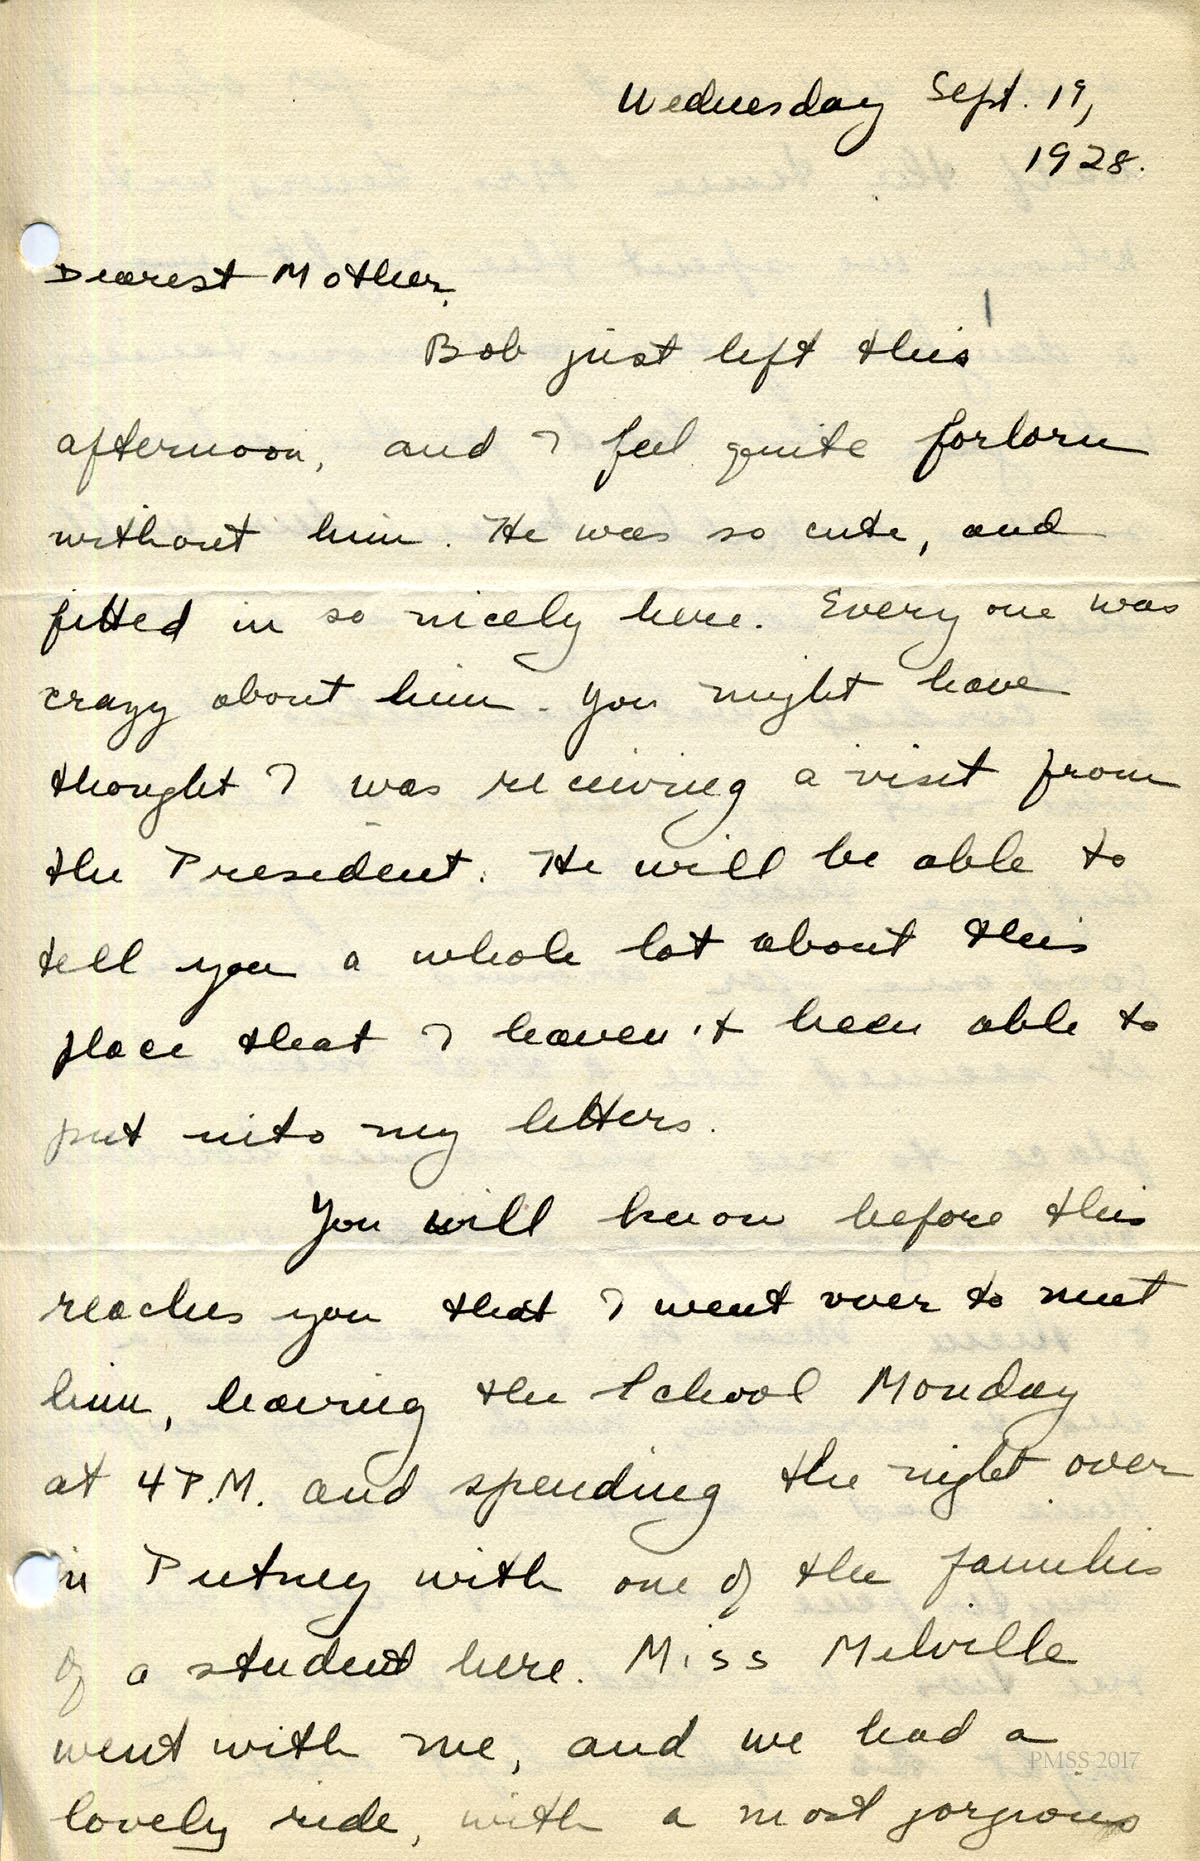 Wednesday Sept. 19,
1928.
Dearest Mother,
Bob just left this
afternoon, and I feel quite forlorn
without him. He was so cute, and
fitted in so nicely here. Every one was
crazy about him. You might have
thought I was receiving a visit from
the President. He will be able to
tell you a whole lot about this
place that I haven't been able to
put into my letters.
You will know before this
reaches you that I went over to meet
him, leaving the School Monday
at 4 P.M. and spending the night over
in Putney with one of the families
of a student here. Miss Melville
went with me, and we had a
PMSS 2017
lovely ride, with a most gorgeous